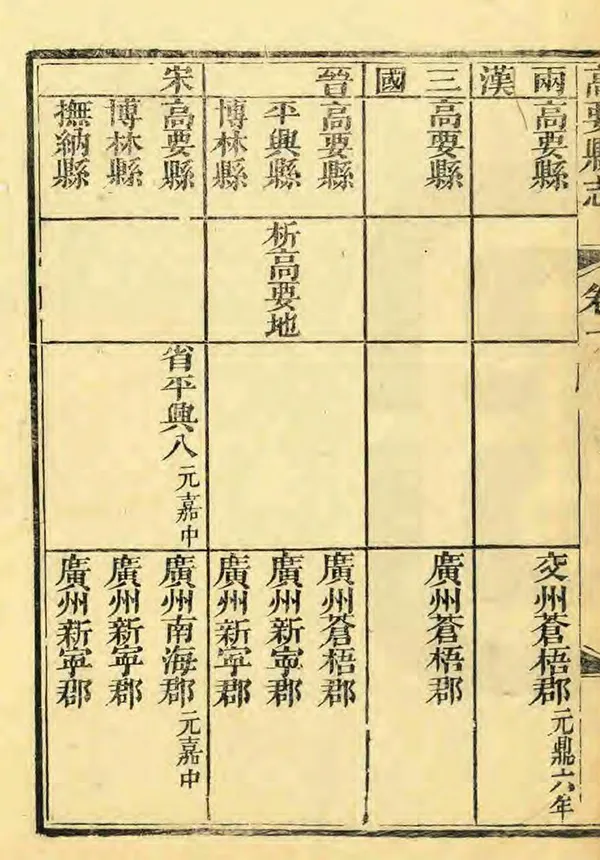 高要縣志
卷
兩漢
高要縣
交州蒼梧郡元鼎六年
三國
高要縣
廣州蒼梧郡
晉
高要縣
廣州蒼梧郡
平興縣
析高要地
廣州新寧郡
博林縣
廣州新寧郡
宋
高要縣
省平興入元嘉中
廣州南海郡元嘉中
博林縣
廣州新寧郡
撫納縣
廣州新寧郡